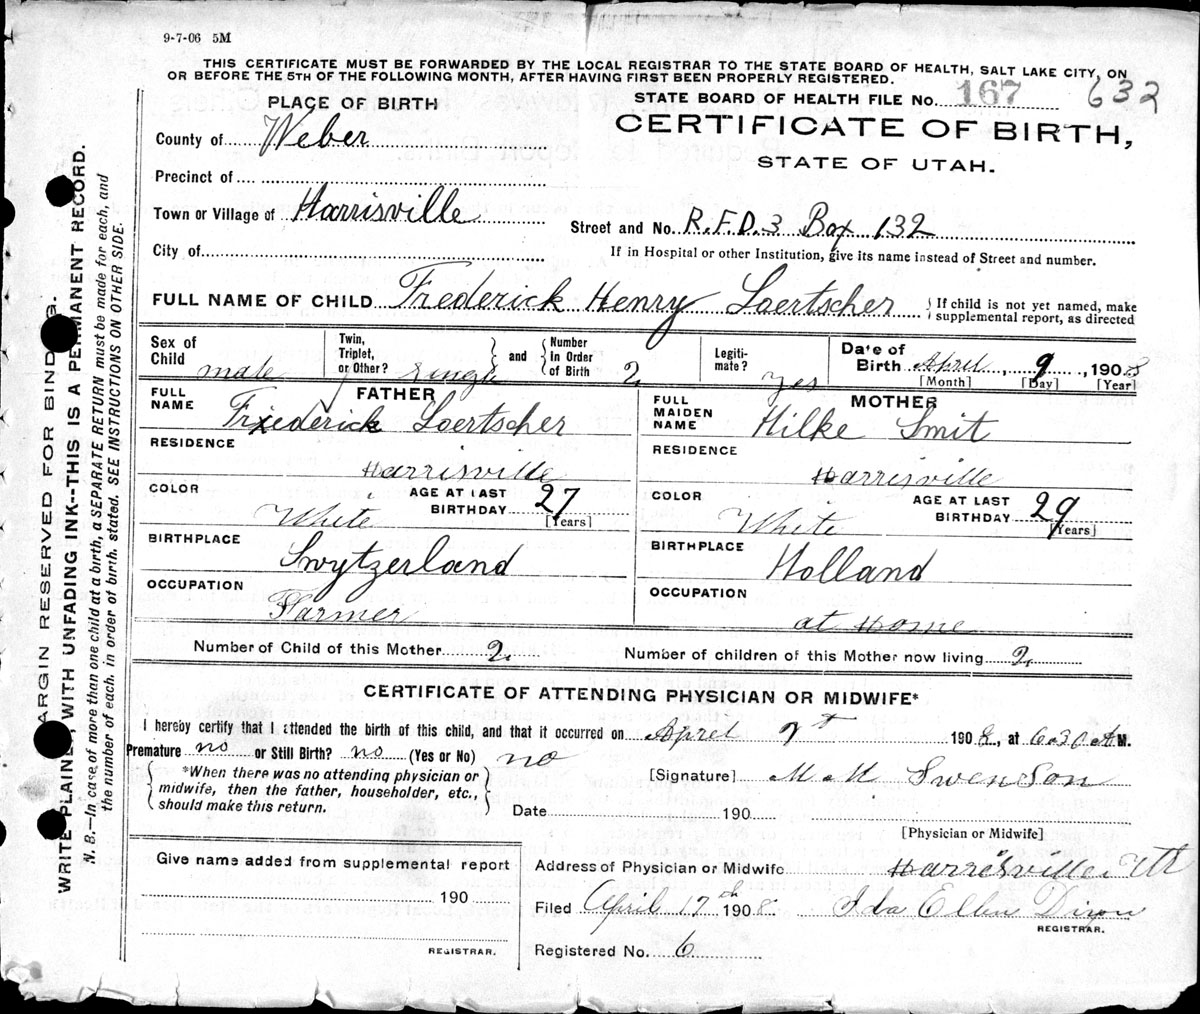 9-7-06 5M
THIS CERTIFICATE MUST BE FORWARDED BY THE LOCAL REGISTRAR TO THE STATE BOARD OF HEALTH, SALT LAKE CITY, ON
OR BEFORE THE 5TH OF THE FOLLOWING MONTH, AFTER HAVING FIRST BEEN PROPERLY REGISTERED.
PLACE OF BIRTH
STATE BOARD OF HEALTH FILE No. 167 632
County of Weber
CERTIFICATE OF BIRTH,
STATE OF UTAH.
Precinct of
Town or Village of Harrisville
Street and No. R.F.D. 3 Box 132
City of
If in Hospital or other Institution, give its name instead of Street and number.
FULL NAME OF CHILD Frederick Henry Loertscher
If child is not yet named, make
supplemental report, as directed
Sex of Child male
Twin, Triplet, or Other? single and Number In Order of Birth 2
Legiti- mate? yes
Date of Birth April 9, 1908
[Month] [Day] [Year]
FATHER
FULL NAME Frederick Loertscher
RESIDENCE Harrisville
COLOR White
AGE AT LAST BIRTHDAY 27 [Years]
BIRTHPLACE Swytzerland
OCCUPATION Farmer
MOTHER
FULL MAIDEN NAME Hilke Smit
RESIDENCE Harrisville
COLOR White
AGE AT LAST BIRTHDAY 29 [Years]
BIRTHPLACE Holland
OCCUPATION at Home
Number of Child of this Mother 2
Number of children of this Mother now living 2
CERTIFICATE OF ATTENDING PHYSICIAN OR MIDWIFE*
I hereby certify that I attended the birth of this child, and that it occurred on April 9t 1908, at 6:30 A M.
Premature no or Still Birth? no (Yes or No) no
*When there was no attending physician or
midwife, then the father, householder, etc.,
should make this return.
[Signature] M M Swenson
Date 190
[Physician or Midwife]
Give name added from supplemental report
190
REGISTRAR.
Address of Physician or Midwife Harrisville Ut
Filed April 17th 1908. Ida Ellen Dixon
REGISTRAR.
Registered No. 6
MARGIN RESERVED FOR BINDING.
WRITE PLAINLY, WITH UNFADING INK--THIS IS A PERMANENT RECORD.
N. B.—In case of more than one child at a birth, a SEPARATE RETURN must be made for each, and
the number of each, in order of birth, stated. SEE INSTRUCTIONS ON OTHER SIDE.